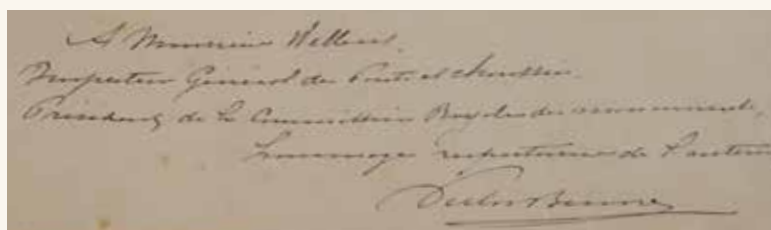 A Monsieur Wellens,
Inspecteur Général des Ponts et chaussées.
Président de la Commission Royale des monuments,
hommage respectueux de l'auteur